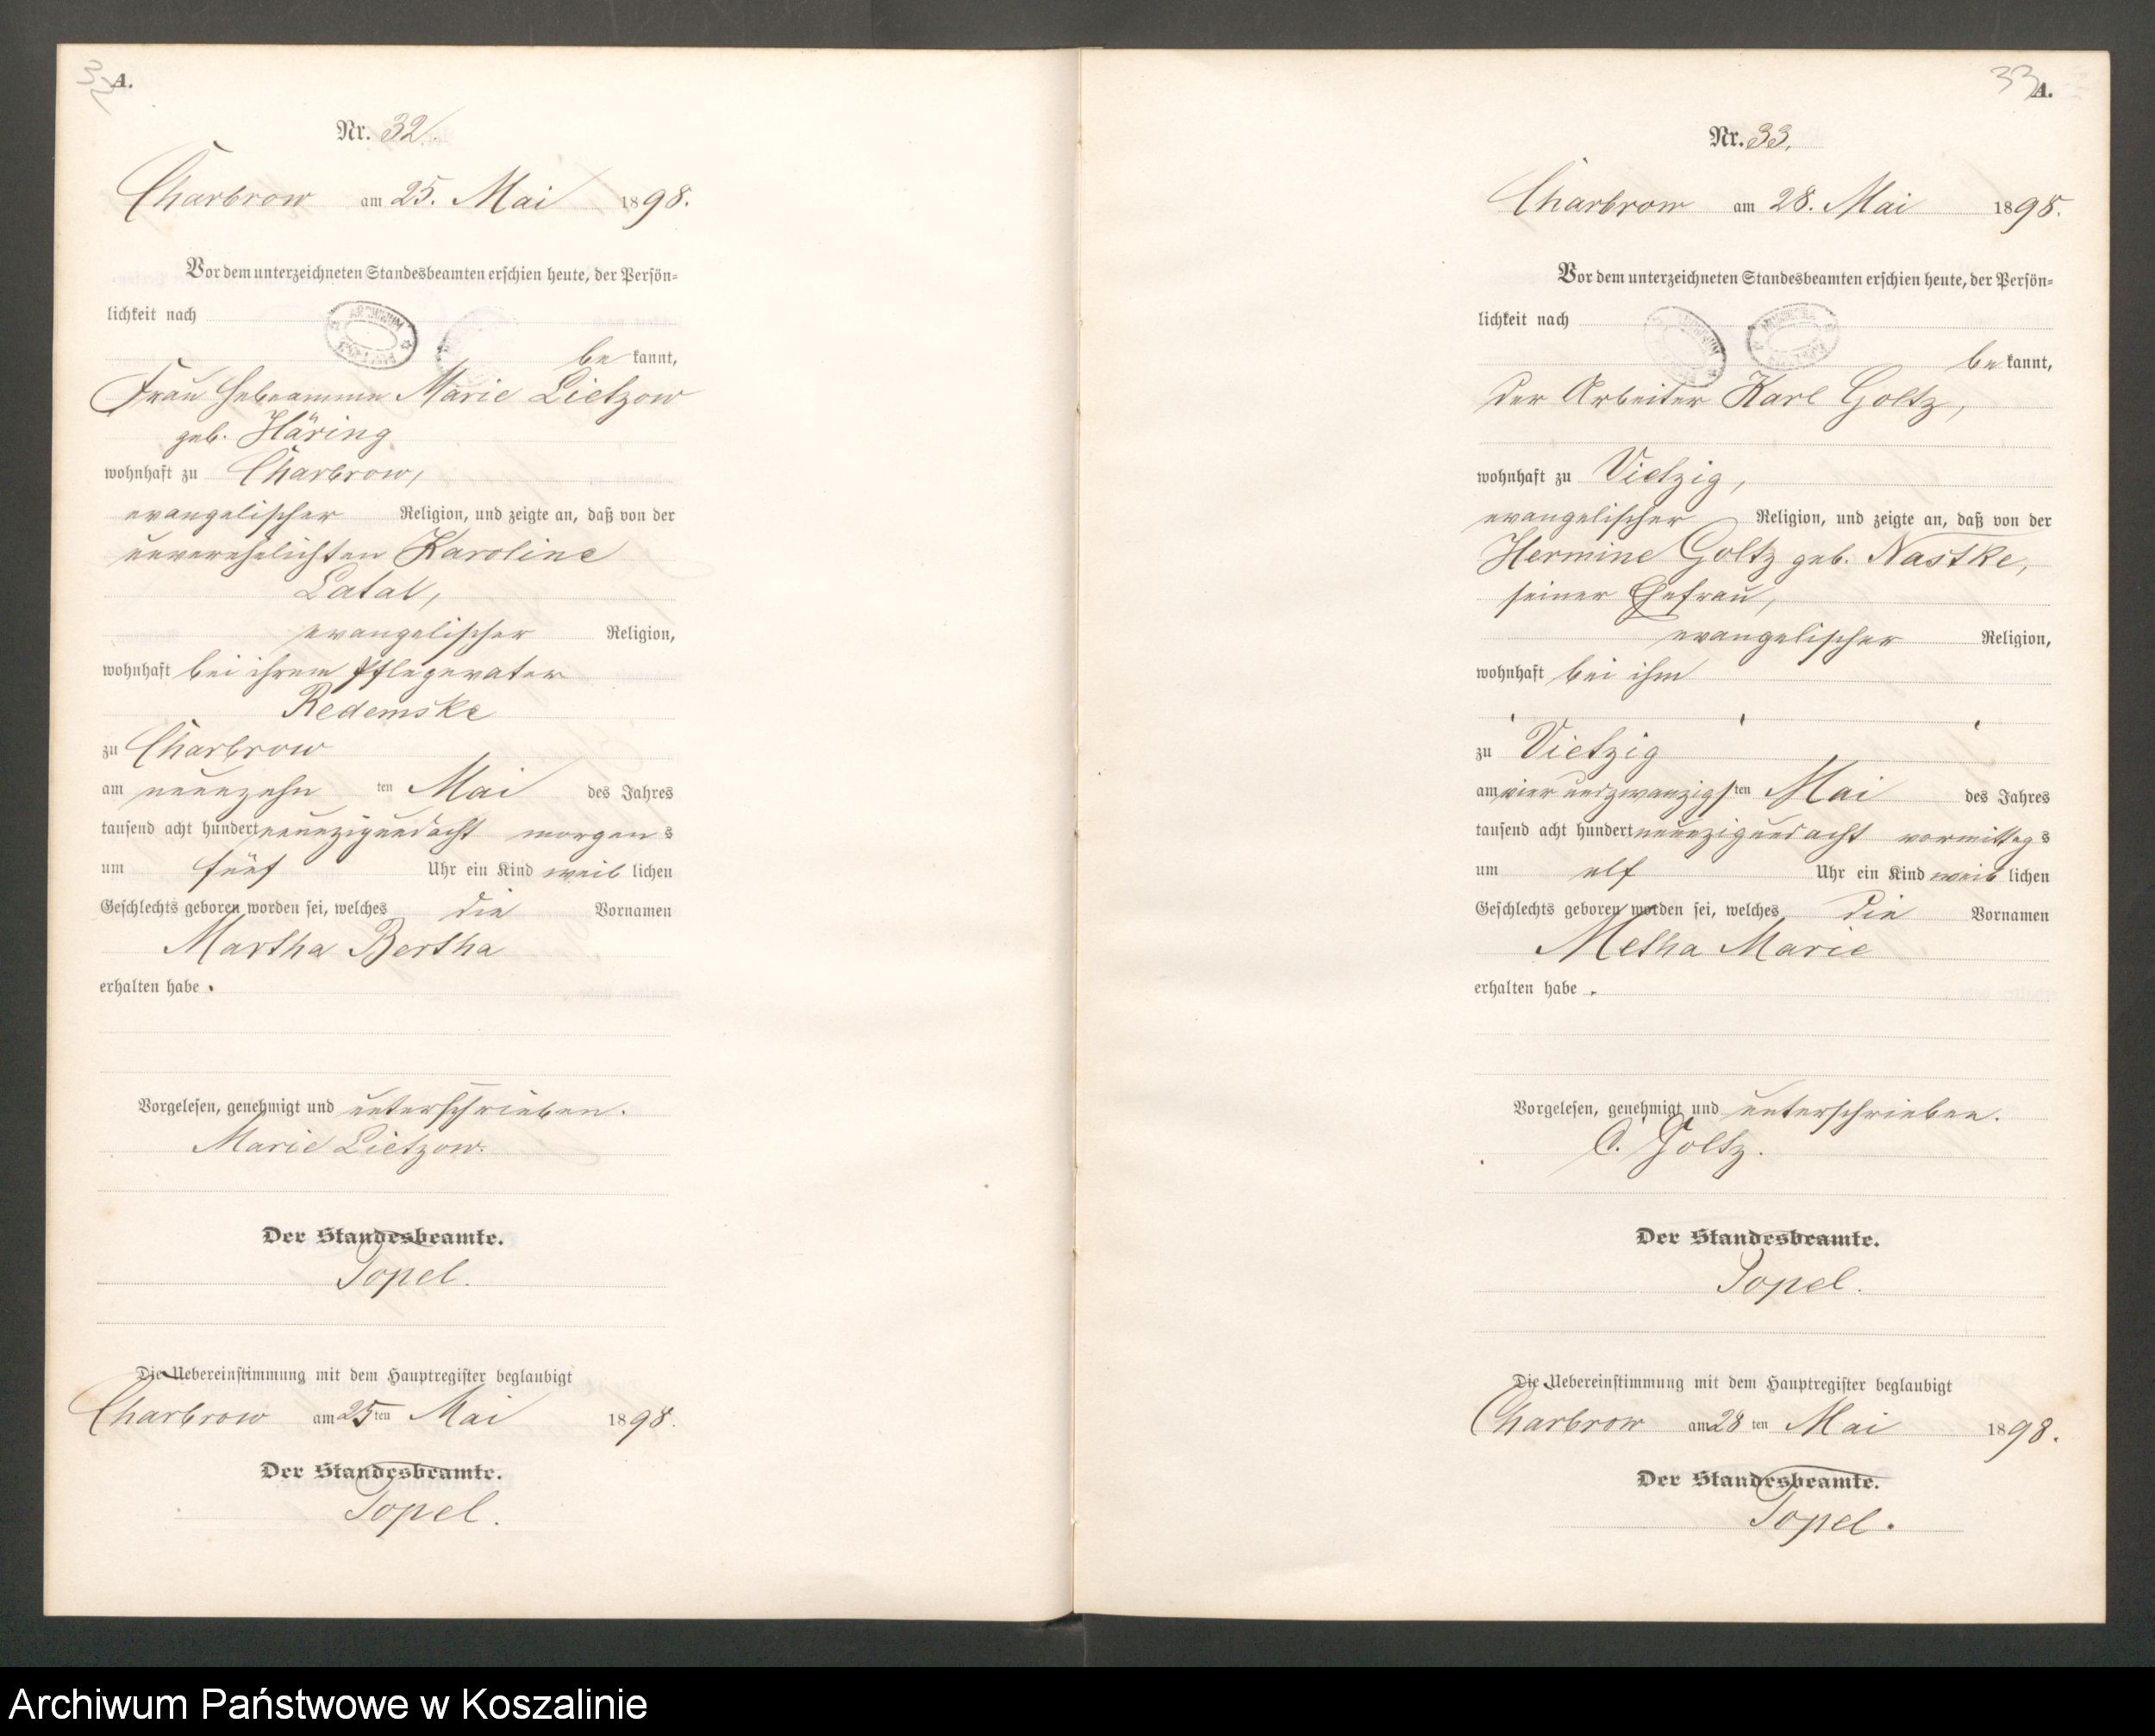 32
A.
Nr. 32.
Charbrow am 25. Mai 1898.
Vor dem unterzeichneten Standesbeamten erschien heute, der Persön=
lichkeit nach
ARCHIWUM
be kannt,
Frau Hebeamme Marie Lietzow
geb. Häring
wohnhaft zu Charbrow,
evangelischer Religion, und zeigte an, daß von der
unverehelichten Karoline
Latal,
evangelischer Religion,
wohnhaft bei ihrem Pflegevater
Redemske
zu Charbrow
am neunzehn ten Mai des Jahres
tausend acht hundert neunzigundacht morgen s
um fünf Uhr ein Kind weib lichen
Geschlechts geboren worden sei, welches die Vornamen
Martha Bertha
erhalten habe.
Vorgelesen, genehmigt und unterschrieben.
Marie Lietzow.
Der Standesbeamte.
Topel.
Die Uebereinstimmung mit dem Hauptregister beglaubigt
Charbrow am 25ten Mai 1898.
Der Standesbeamte.
Topel.
33
A.
Nr. 33.
Charbrow am 28. Mai 1898.
Vor dem unterzeichneten Standesbeamten erschien heute, der Persön=
lichkeit nach
be kannt,
der Arbeiter Karl Goltz,
wohnhaft zu Vietzig,
evangelischer Religion, und zeigte an, daß von der
Hermine Goltz geb. Nastke,
seiner Ehefrau,
evangelischer Religion,
wohnhaft bei ihm
zu Vietzig
am vier undzwanzigsten Mai des Jahres
tausend acht hundert neunzigundacht vormittag s
um elf Uhr ein Kind weib lichen
Geschlechts geboren worden sei, welches die Vornamen
Metha Marie
erhalten habe.
Vorgelesen, genehmigt und unterschrieben.
C. Goltz.
Der Standesbeamte.
Topel.
Die Uebereinstimmung mit dem Hauptregister beglaubigt
Charbrow am 28 ten Mai 1898.
Der Standesbeamte.
Topel.
Archiwum Państwowe w Koszalinie